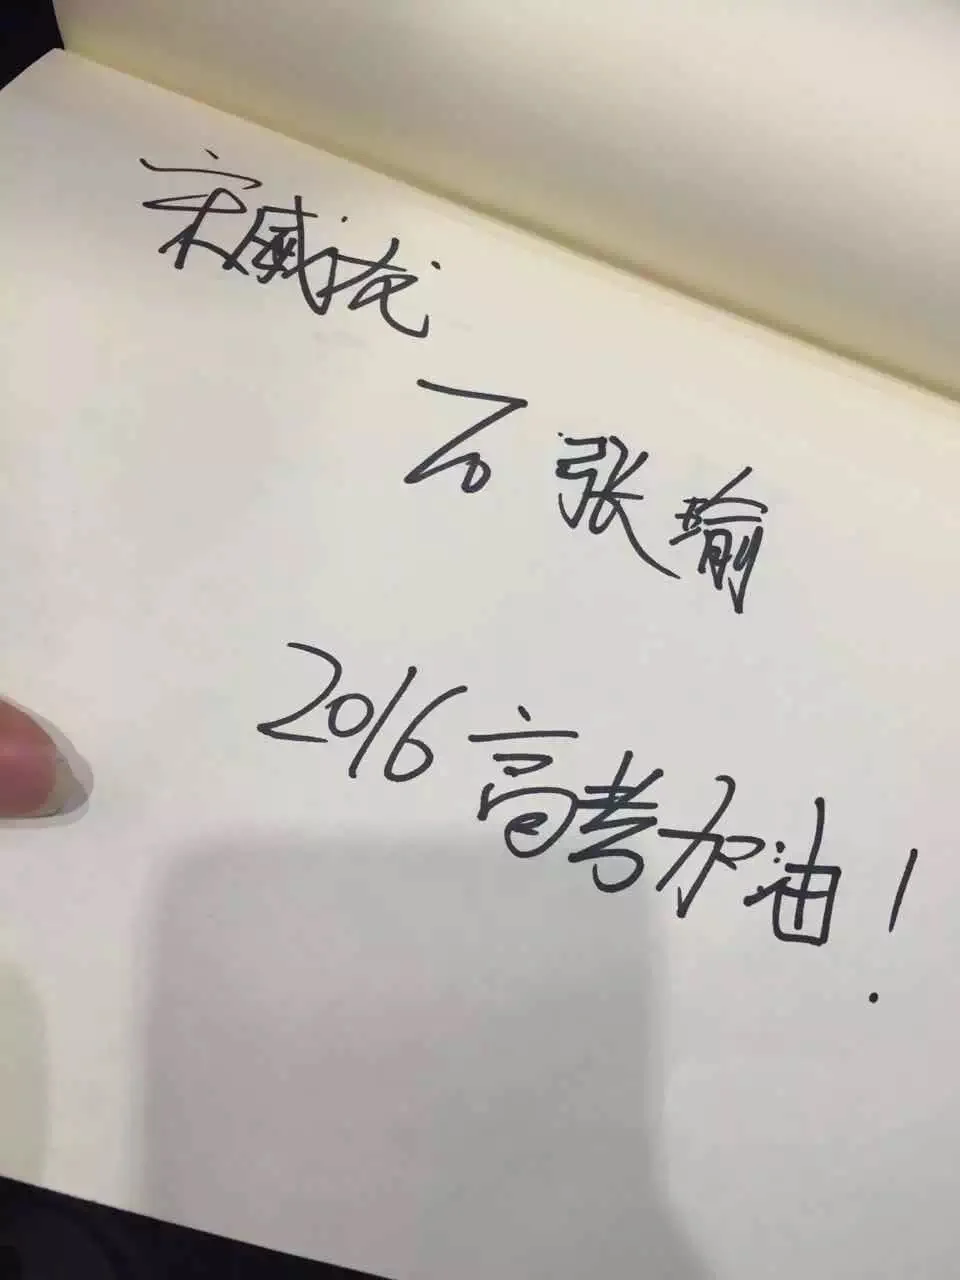 宋威龙
石张瑜
2016高考加油！